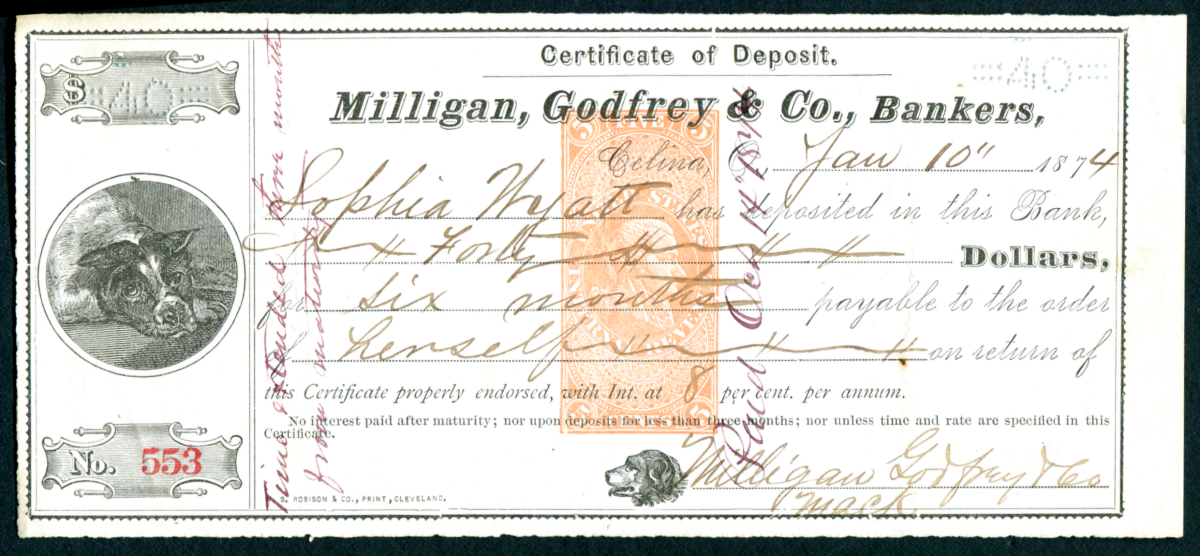 Certificate of Deposit.
$ =40= =40=
Milligan, Godfrey & Co., Bankers,
Celina, O., Jan 10" 1874
Sophia Wyatt has deposited in this Bank,
Forty Dollars,
for six months payable to the order
of herself on return of
this Certificate properly endorsed, with Int. at 8 per cent. per annum.
No interest paid after maturity; nor upon deposits for less than three months; nor unless time and rate are specified in this
Certificate.
No. 553
Milligan Godfrey & Co
Mack
S. ROBISON & CO., PRINT, CLEVELAND.
Time extended three months
from maturity
Paid Oct 14" 1874
5 FIVE 5
UNITED STATES
INTER. REVENUE
5 5